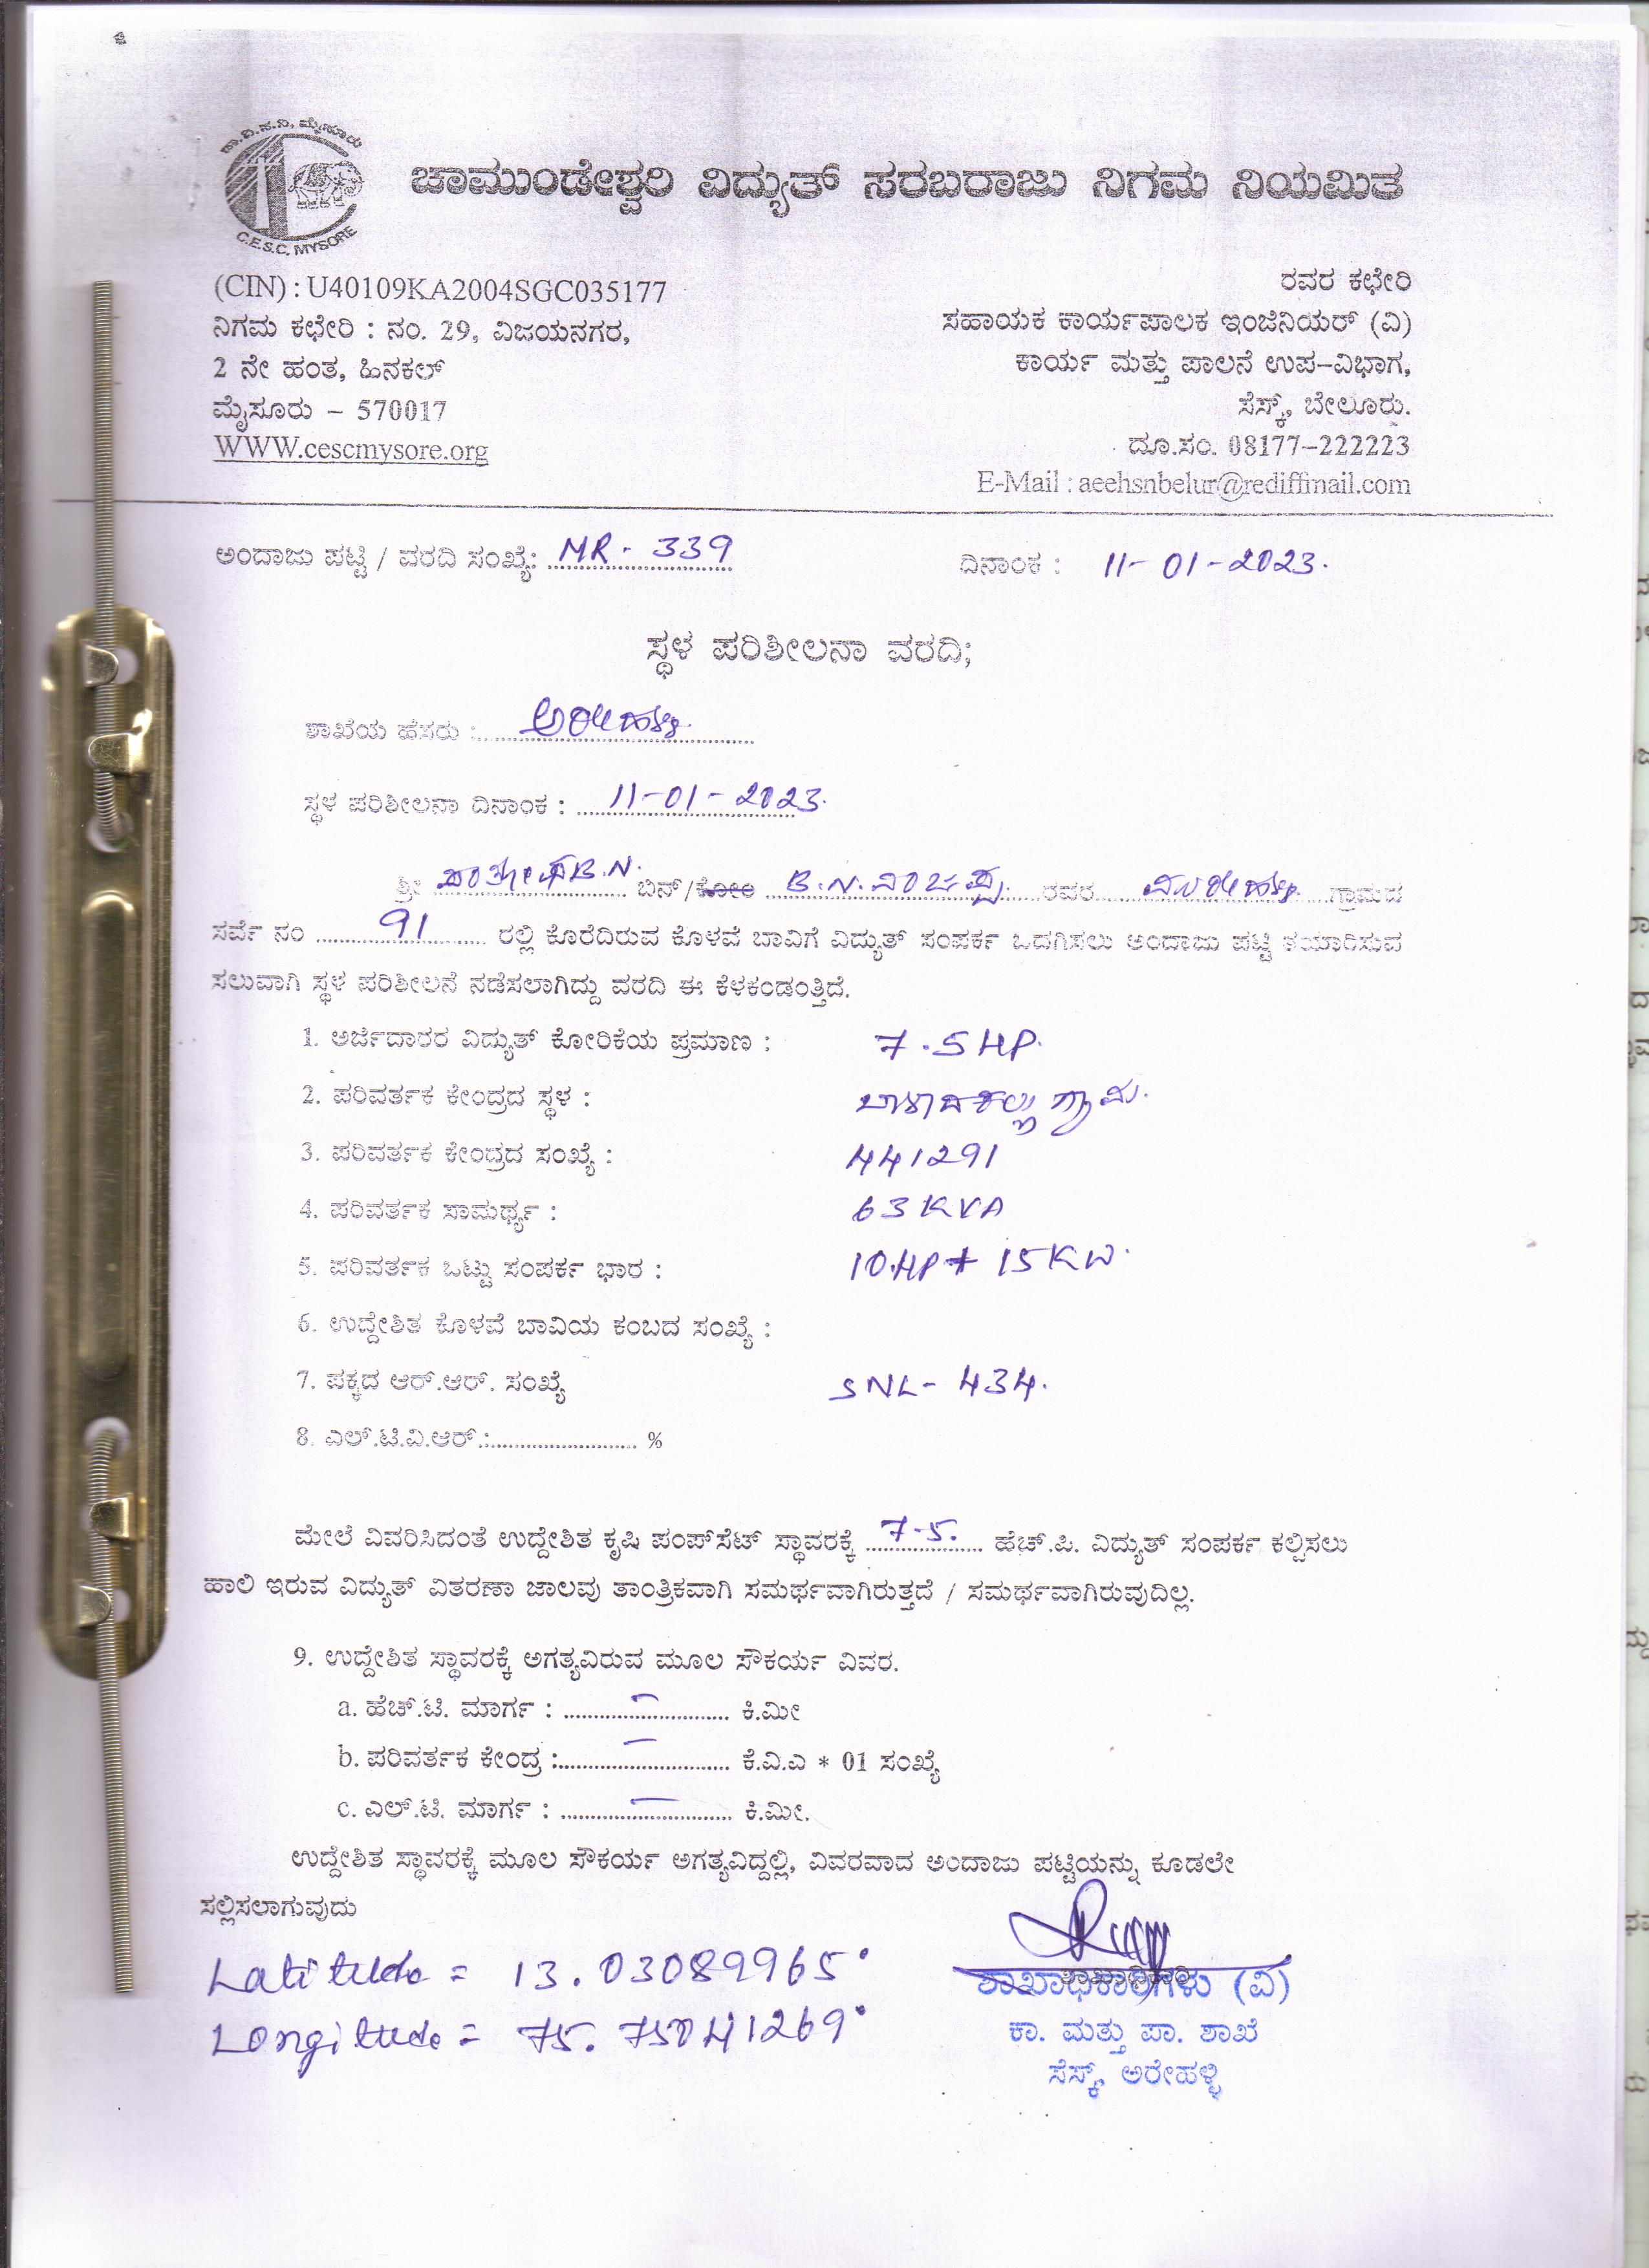 ಚಾ.ವಿ.ಸ.ನಿ, ಮೈಸೂರು
C.E.S.C. MYSORE
ಚಾಮುಂಡೇಶ್ವರಿ ವಿದ್ಯುತ್ ಸರಬರಾಜು ನಿಗಮ ನಿಯಮಿತ
(CIN) : U40109KA2004SGC035177
ನಿಗಮ ಕಛೇರಿ : ನಂ. 29, ವಿಜಯನಗರ,
2 ನೇ ಹಂತ, ಹಿನಕಲ್
ಮೈಸೂರು – 570017
WWW.cescmysore.org
ರವರ ಕಛೇರಿ
ಸಹಾಯಕ ಕಾರ್ಯಪಾಲಕ ಇಂಜಿನಿಯರ್ (ವಿ)
ಕಾರ್ಯ ಮತ್ತು ಪಾಲನೆ ಉಪ–ವಿಭಾಗ,
ಸೆಸ್ಕ್, ಬೇಲೂರು.
ದೂ.ಸಂ. 08177–222223
E-Mail : aeehsnbelur@rediffmail.com
ಅಂದಾಜು ಪಟ್ಟಿ / ವರದಿ ಸಂಖ್ಯೆ: MR - 339 ದಿನಾಂಕ : 11-01-2023.
ಸ್ಥಳ ಪರಿಶೀಲನಾ ವರದಿ;
ಶಾಖೆಯ ಹೆಸರು : ಅರೇಹಳ್ಳಿ
ಸ್ಥಳ ಪರಿಶೀಲನಾ ದಿನಾಂಕ : 11-01-2023.
ಶ್ರೀ B.N. ಬಿನ್/ಕೋಂ B.N. ರವರ ಗ್ರಾಮದ
ಸರ್ವೆ ನಂ 91 ರಲ್ಲಿ ಕೊರೆದಿರುವ ಕೊಳವೆ ಬಾವಿಗೆ ವಿದ್ಯುತ್ ಸಂಪರ್ಕ ಒದಗಿಸಲು ಅಂದಾಜು ಪಟ್ಟಿ ತಯಾರಿಸುವ
ಸಲುವಾಗಿ ಸ್ಥಳ ಪರಿಶೀಲನೆ ನಡೆಸಲಾಗಿದ್ದು ವರದಿ ಈ ಕೆಳಕಂಡಂತ್ತಿದೆ.
1. ಅರ್ಜಿದಾರರ ವಿದ್ಯುತ್ ಕೋರಿಕೆಯ ಪ್ರಮಾಣ : 7.5 HP.
2. ಪರಿವರ್ತಕ ಕೇಂದ್ರದ ಸ್ಥಳ : ಗ್ರಾಮ.
3. ಪರಿವರ್ತಕ ಕೇಂದ್ರದ ಸಂಖ್ಯೆ : 441291
4. ಪರಿವರ್ತಕ ಸಾಮರ್ಥ್ಯ : 63 KVA
5. ಪರಿವರ್ತಕ ಒಟ್ಟು ಸಂಪರ್ಕ ಭಾರ : 10.HP + 15KW.
6. ಉದ್ದೇಶಿತ ಕೊಳವೆ ಬಾವಿಯ ಕಂಬದ ಸಂಖ್ಯೆ :
7. ಪಕ್ಕದ ಆರ್.ಆರ್. ಸಂಖ್ಯೆ SNL - 434.
8. ಎಲ್.ಟಿ.ವಿ.ಆರ್.:........................ %
ಮೇಲೆ ವಿವರಿಸಿದಂತೆ ಉದ್ದೇಶಿತ ಕೃಷಿ ಪಂಪ್‌ಸೆಟ್ ಸ್ಥಾವರಕ್ಕೆ 7-5. ಹೆಚ್.ಪಿ. ವಿದ್ಯುತ್ ಸಂಪರ್ಕ ಕಲ್ಪಿಸಲು
ಹಾಲಿ ಇರುವ ವಿದ್ಯುತ್ ವಿತರಣಾ ಜಾಲವು ತಾಂತ್ರಿಕವಾಗಿ ಸಮರ್ಥವಾಗಿರುತ್ತದೆ / ಸಮರ್ಥವಾಗಿರುವುದಿಲ್ಲ.
9. ಉದ್ದೇಶಿತ ಸ್ಥಾವರಕ್ಕೆ ಅಗತ್ಯವಿರುವ ಮೂಲ ಸೌಕರ್ಯ ವಿವರ.
a. ಹೆಚ್.ಟಿ. ಮಾರ್ಗ : – ಕಿ.ಮೀ
b. ಪರಿವರ್ತಕ ಕೇಂದ್ರ : – ಕೆ.ವಿ.ಎ * 01 ಸಂಖ್ಯೆ
c. ಎಲ್.ಟಿ. ಮಾರ್ಗ : – ಕಿ.ಮೀ.
ಉದ್ದೇಶಿತ ಸ್ಥಾವರಕ್ಕೆ ಮೂಲ ಸೌಕರ್ಯ ಅಗತ್ಯವಿದ್ದಲ್ಲಿ, ವಿವರವಾದ ಅಂದಾಜು ಪಟ್ಟಿಯನ್ನು ಕೂಡಲೇ
ಸಲ್ಲಿಸಲಾಗುವುದು
Latitude = 13.03089965°
Longitude = 75.75041269°
ಶಾಖಾಧಿಕಾರಿಗಳು (ವಿ)
ಕಾ. ಮತ್ತು ಪಾ. ಶಾಖೆ
ಸೆಸ್ಕ್, ಅರೇಹಳ್ಳಿ